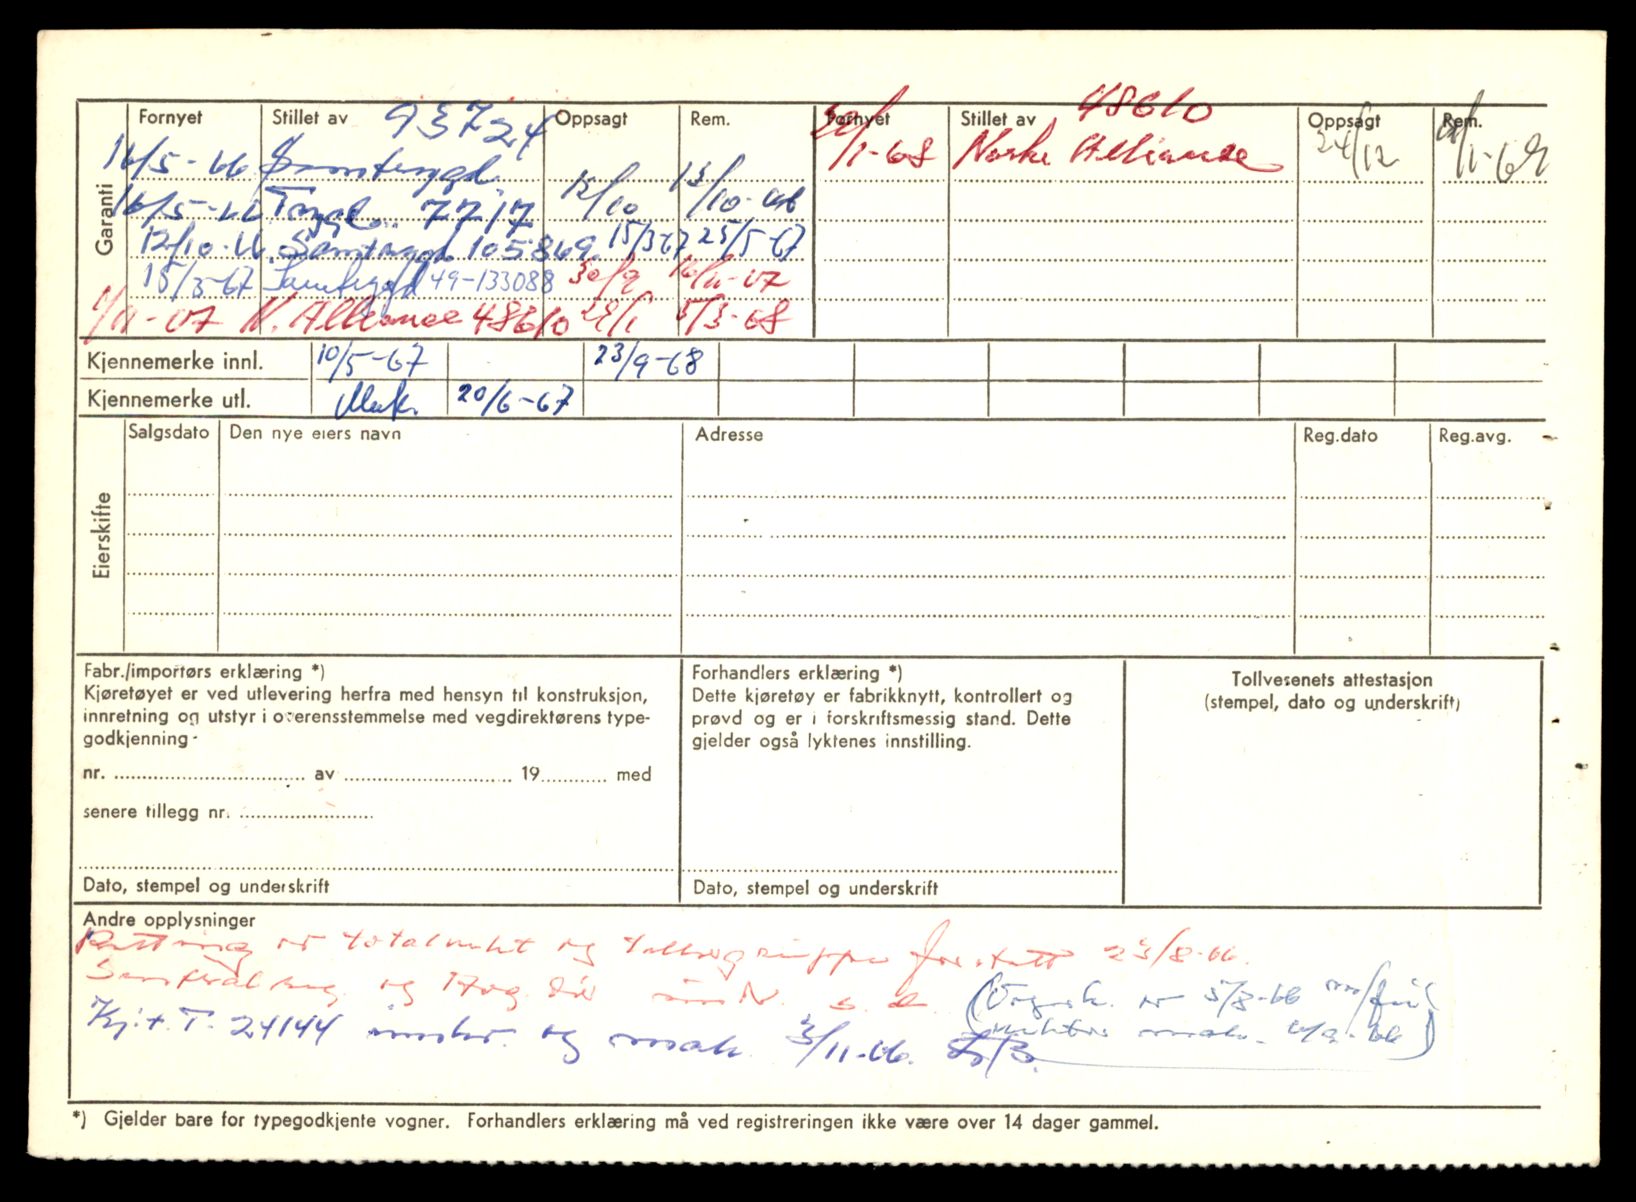 Garanti
Fornyet Stillet av 93724 Oppsagt Rem.
16/5-66 Samtrygd
16/5-66 Trygd. 7717 12/10 13/10-66
12/10-66 Samtrygd 105869 15/3-67 25/5-67
15/3-67 Samtrygd 49-133088 30/9 16/11-67
1/11-67 N. Alliance 48610 29/1 5/3-68
Fornyet Stillet av 48610 Oppsagt Rem.
/1-68 Norske Alliance 24/12 /1-69
Kjennemerke innl. 10/5-67 23/9-68
Kjennemerke utl. Mak. 20/6-67
Eierskifte
Salgsdato Den nye eiers navn Adresse Reg.dato Reg.avg.
Fabr./importørs erklæring *)
Kjøretøyet er ved utlevering herfra med hensyn til konstruksjon,
innretning og utstyr i overensstemmelse med vegdirektørens type-
godkjenning
nr. av 19 med
senere tillegg nr.
Dato, stempel og underskrift
Forhandlers erklæring *)
Dette kjøretøy er fabrikknytt, kontrollert og
prøvd og er i forskriftsmessig stand. Dette
gjelder også lyktenes innstilling.
Dato, stempel og underskrift
Tollvesenets attestasjon
(stempel, dato og underskrift)
Andre opplysninger
av totalvekt og 23/8-66.
og s. d. 5/8-66
Kj.t. T-24144 innkr. og mak. 3/11-66.
mak.
*) Gjelder bare for typegodkjente vogner. Forhandlers erklæring må ved registreringen ikke være over 14 dager gammel.